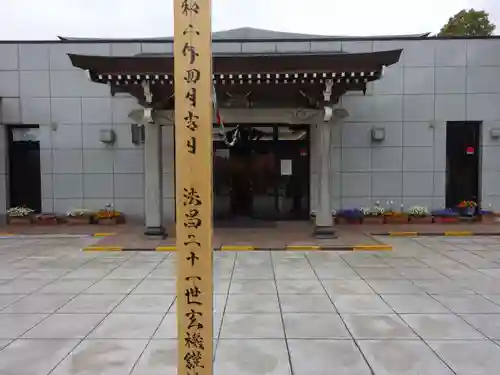 和六年四月 日 法昌二十一世玄機継